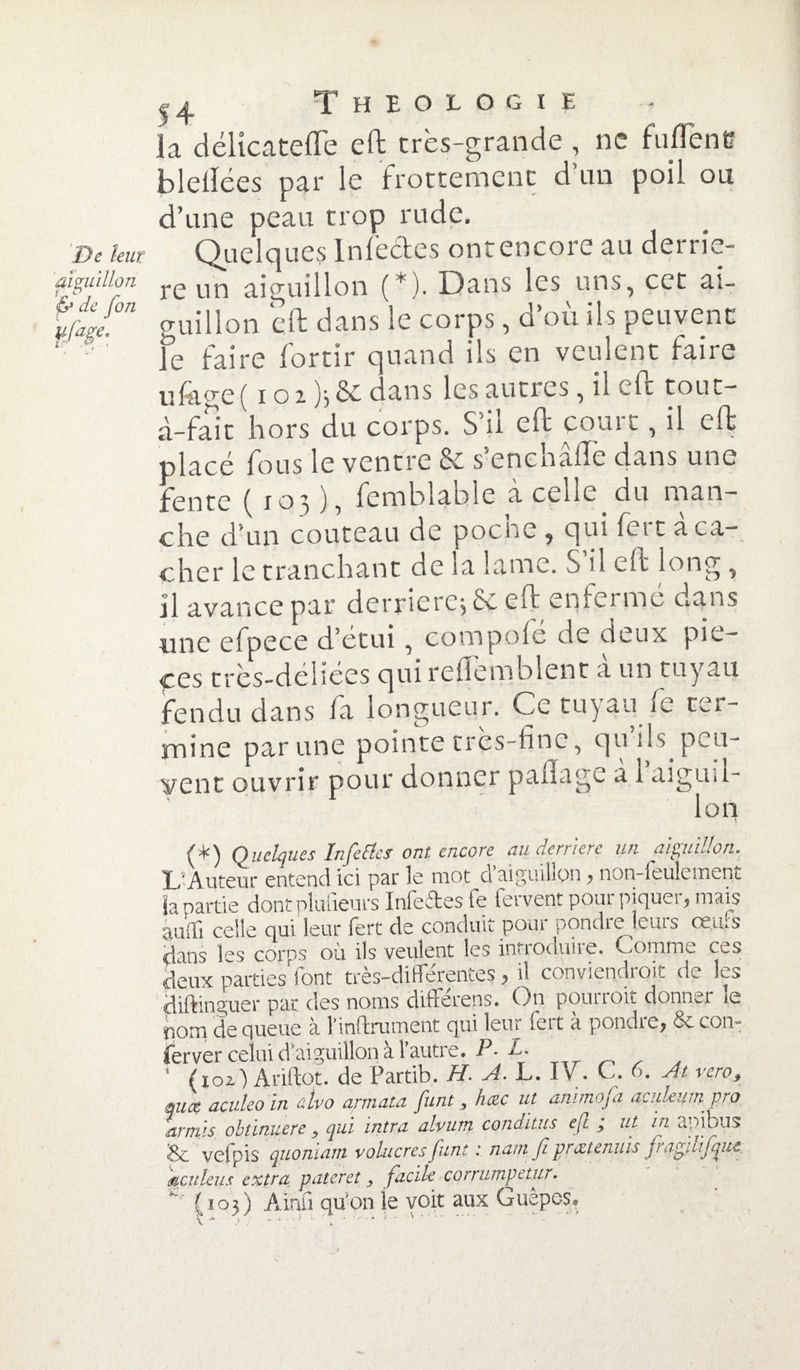 54 THEOLOGIE
la délicateſſe eſt très-grande, ne fuſſent
bleſſées par le frottement d'un poil ou
d'une peau trop rude.
De leur
aiguillon
& de ſon
uſage.
Quelques Inſectes ont encore au derrie-
re un aiguillon (*). Dans les uns, cet ai-
guillon eſt dans le corps, d'où ils peuvent
le faire ſortir quand ils en veulent faire
uſage (102); & dans les autres, il eſt tout-
à-fait hors du corps. S'il eſt court, il eſt
placé ſous le ventre & s'enchâſſe dans une
fente (103), ſemblable à celle du man-
che d'un couteau de poche, qui ſert à ca-
cher le tranchant de la lame. S'il eſt long,
il avance par derriere; & eſt enfermé dans
une eſpece d'étui, compoſé de deux pie-
ces très-déliées qui reſſemblent à un tuyau
fendu dans ſa longueur. Ce tuyau ſe ter-
mine par une pointe très-fine, qu'ils peu-
vent ouvrir pour donner paſſage à l'aiguil-
lon
(*) Quelques Inſectes ont encore au derriere un aiguillon.
L'Auteur entend ici par le mot d'aiguillon, non-ſeulement
la partie dont pluſieurs Inſectes ſe ſervent pour piquer, mais
auſſi celle qui leur ſert de conduit pour pondre leurs œufs
dans les corps où ils veulent les introduire. Comme ces
deux parties ſont très-différentes, il conviendroit de les
diſtinguer par des noms différens. On pourroit donner le
nom de queue à l'inſtrument qui leur ſert à pondre, & con-
ſerver celui d'aiguillon à l'autre. P. L.
(102) Ariſtot. de Partib. H. A. L. IV. C. 6. At vero,
quæ aculeo in alvo armata ſunt, hæc ut animoſa aculeum pro
armis obtinuere, qui intra alvum conditus eſt; ut in apibus
& veſpis quoniam volucres ſunt: nam ſi prætenuis fragiliſque
aculeus extra pateret, facile corrumpetur.
(103) Ainſi qu'on le voit aux Guêpes.